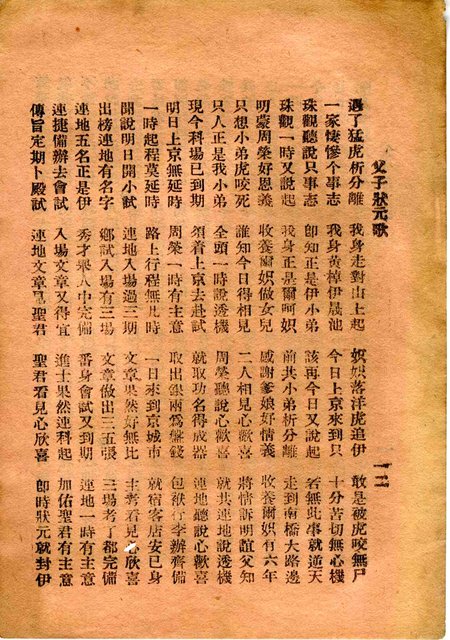 父子狀元歌 一二
遇了猛虎析分離 我身走對山上起 㚥娘落洋虎追伊 敢是被虎咬無尸
一家悽慘个事志 我身黃棹伊晟池 今日上京來到只 十分苦切無心機
珠觀聽說只事志 即知正是伊小弟 該再今日又說起 若無此事就逆天
珠觀一時又說起 我身正是爾呵㚥 前共小弟析分離 走到南橋大路邊
明蒙周榮好恩義 收養爾㚥做女兒 感謝爹娘好情義 收養爾㚥有六年
只想小弟虎咬死 誰知今日得相見 二人相見心歡喜 將情訴明誼父知
只人正是我小弟 全頭一時說透機 周榮聽說心歡喜 就共連地說透機
現今科場已到期 須着上京去赴試 就取功名得成器 連地聽說心歡喜
明日上京無延時 周榮一時有主意 取出銀兩為盤錢 包袱行李辦齊備
一時起程莫延時 路上行程無几時 一日來到京城市 就宿客店安已身
開說明日開小試 連地入場過三期 文章果然好無比 主考看見心欣喜
出榜連地有名字 鄉試入場都完備 文章做出三五張 三場考了都完備
連地五名正是伊 秀才舉人中完備 番身會試又到期 連地一時有主意
連捷備辦去會試 入場文章又得宜 進士果然連科起 加佑聖君有主意
傳旨定期卜殿試 連地文章呈聖君 聖君看見心欣喜 即時狀元就封伊